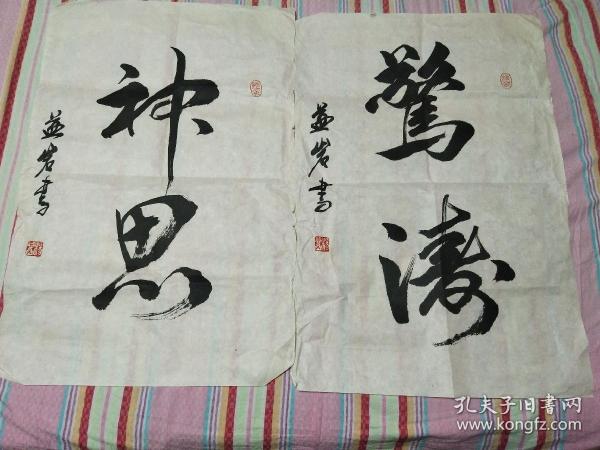 驚濤
岩書
神思
岩書
孔夫子旧書网
www.kongfz.com